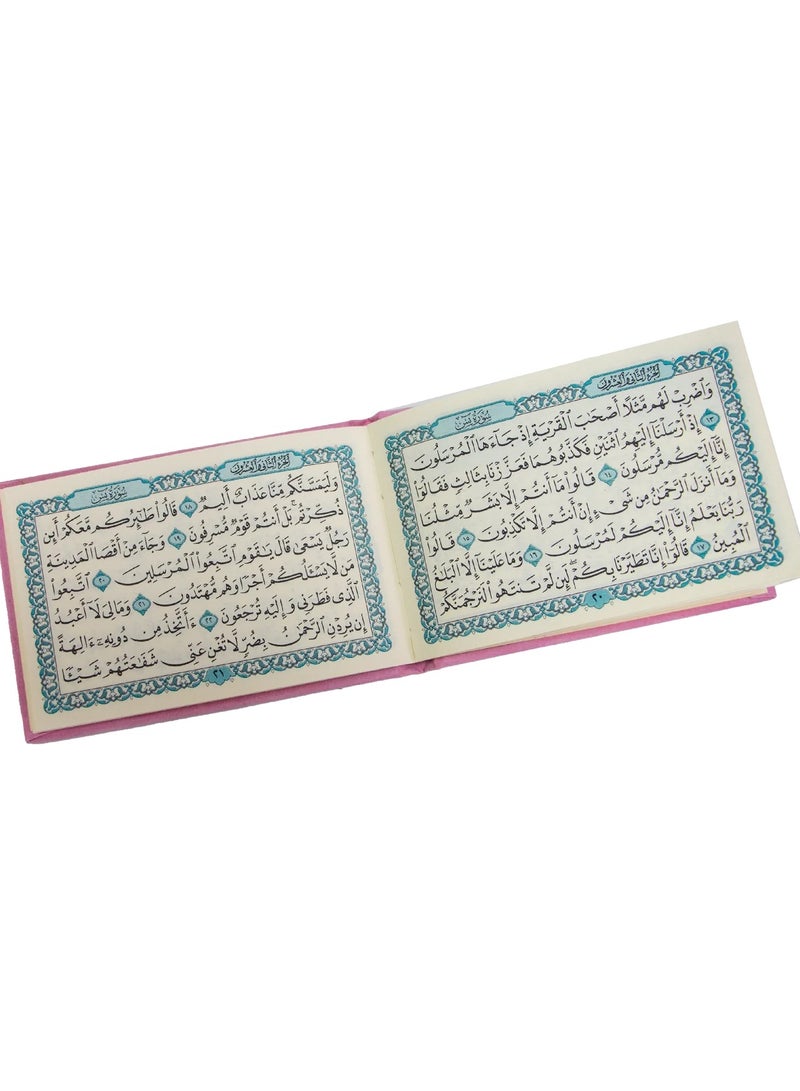 الجزء الثاني والعشرون
سورة يس
وَٱضْرِبْ لَهُم مَّثَلًا أَصْحَٰبَ ٱلْقَرْيَةِ إِذْ جَآءَهَا ٱلْمُرْسَلُونَ
١٣ إِذْ أَرْسَلْنَآ إِلَيْهِمُ ٱثْنَيْنِ فَكَذَّبُوهُمَا فَعَزَّزْنَا بِثَالِثٍ فَقَالُوٓا۟
إِنَّآ إِلَيْكُم مُّرْسَلُونَ ١٤ قَالُوا۟ مَآ أَنتُمْ إِلَّا بَشَرٌ مِّثْلُنَا
وَمَآ أَنزَلَ ٱلرَّحْمَٰنُ مِن شَىْءٍ إِنْ أَنتُمْ إِلَّا تَكْذِبُونَ ١٥ قَالُوا۟
رَبُّنَا يَعْلَمُ إِنَّآ إِلَيْكُمْ لَمُرْسَلُونَ ١٦ وَمَا عَلَيْنَآ إِلَّا ٱلْبَلَٰغُ
ٱلْمُبِينُ ١٧ قَالُوٓا۟ إِنَّا تَطَيَّرْنَا بِكُمْ ۖ لَئِن لَّمْ تَنتَهُوا۟ لَنَرْجُمَنَّكُمْ
٢٠
الجزء الثاني والعشرون
سورة يس
وَلَيَمَسَّنَّكُم مِّنَّا عَذَابٌ أَلِيمٌ ١٨ قَالُوا۟ طَٰٓئِرُكُم مَّعَكُمْ أَئِن
ذُكِّرْتُم ۚ بَلْ أَنتُمْ قَوْمٌ مُّسْرِفُونَ ١٩ وَجَآءَ مِنْ أَقْصَا ٱلْمَدِينَةِ
رَجُلٌ يَسْعَىٰ قَالَ يَٰقَوْمِ ٱتَّبِعُوا۟ ٱلْمُرْسَلِينَ ٢٠ ٱتَّبِعُوا۟
مَن لَّا يَسْـَٔلُكُمْ أَجْرًا وَهُم مُّهْتَدُونَ ٢١ وَمَالِىَ لَآ أَعْبُدُ
ٱلَّذِى فَطَرَنِى وَإِلَيْهِ تُرْجَعُونَ ٢٢ ءَأَتَّخِذُ مِن دُونِهِۦٓ ءَالِهَةً
إِن يُرِدْنِ ٱلرَّحْمَٰنُ بِضُرٍّ لَّا تُغْنِ عَنِّى شَفَٰعَتُهُمْ شَيْـًٔا
٢١